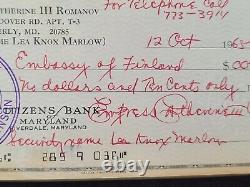 THERINE III ROMANOV
For Telephone Call
DOVER RD. APT. T-3
773-3914
ERLY, MD. 20785
ME LEA KNOX MARLOW
12 Oct 1965
Embassy of Finland $.00
No dollars and no cents only
CITIZENS BANK
OF MARYLAND
RIVERDALE, MARYLAND
Empress Katherine III
Security name Lea Knox Marlow